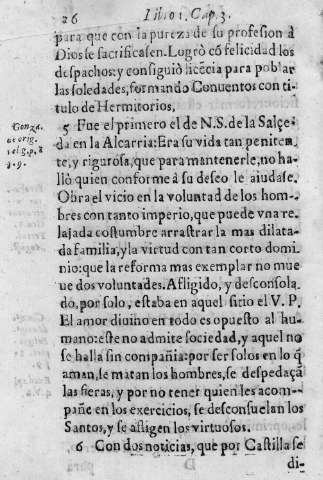 26 Libro 1. Cap. 3.
para que con la pureza de su profesion à
Dios se sacrificasen. Logrò cõ felicidad los
despachos: y consiguiò licẽcia para poblar
las soledades, formando Conuentos con ti-
tulo de Hermitorios,
5 Fue el primero el de N.S. de la Salçe-
da en la Alcarria: Era su vida tan peniten-
te, y rigurosa, que para mantenerle, no ha-
llò quien conforme à su deseo le aiudase.
Obra el vicio en la voluntad de los hom-
bres con tanto imperio, que puede vna re-
lajada costumbre arrastrar la mas dilata-
da familia, y la virtud con tan corto domi-
nio: que la reforma mas exemplar no mue
ue dos voluntades. Afligido, y desconsola-
do, por solo, estaba en aquel sitio el V. P.
El amor diuino en todo es opuesto al hu-
mano: este no admite sociedad, y aquel no
se halla sin compañia: por ser solos en lo q̃
aman, se matan los hombres, se despedaçã
las fieras, y por no tener quien les acom-
pañe en los exercicios, se desconsuelan los
Santos, y se afligen los virtuosos.
6 Con dos noticias, que por Castilla se
di-
Gonza.
de orig.
rel. g. p. 2